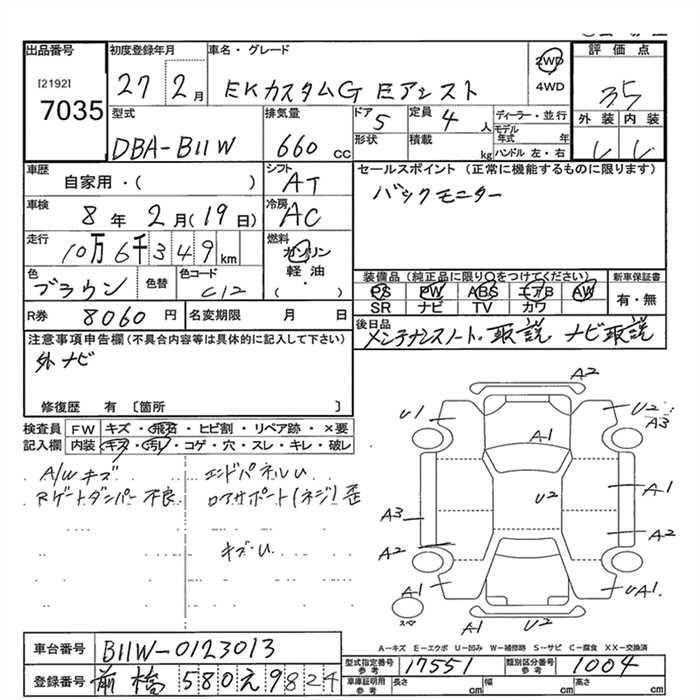 出品番号
[2192]
7035
初度登録年月
27 2月
車名・グレード
EKカスタムG Eアシスト
2WD
4WD
評価点
3.5
外装 内装
型式
DBA-B11W
排気量
660 cc
ドア 5
形状
定員 4 人
積載 kg
ディーラー・並行
モデル年式 年
ハンドル 左・右
車歴
自家用・( )
シフト
AT
セールスポイント (正常に機能するものに限ります)
バックモニター
車検
8年 2月(19日)
冷房
AC
走行
10万6千349km
燃料
ガソリン
軽油・
( )
色
ブラウン
色替
色コード
C12
装備品(純正品に限り○をつけてください)
PS PW ABS エアB AW
SR ナビ TV カワ
新車保証書
有・無
R券 8060円
名変期限 月 日
後日品
メンテナンスノート・取説 ナビ取説
注意事項申告欄(不具合内容等は具体的に記入して下さい)
外ナビ
修復歴 有〔箇所 〕
検査員記入欄
FW キズ・飛石・ヒビ割・リペア跡・×要
内装 キズ・汚れ・コゲ・穴・スレ・キレ・破レ
A/Wキズ
Rゲートダンパー不良
エンドパネルU
ロアサポート(ネジ)歪
キズ・U
A2
U1
U2
A3
A1
A1
U2
A3
A1
A2
A2
A1
UA1
スペア
A2
U2
A-キズ E-エクボ U-凹み W-補修跡 S-サビ C-腐食 XX-交換済
車台番号
B11W-0123013
登録番号
前橋 580 え 9824
型式指定番号
参考
17551
類別区分番号
参考
1004
車庫証明用
参考
長さ cm
幅 cm
高さ cm